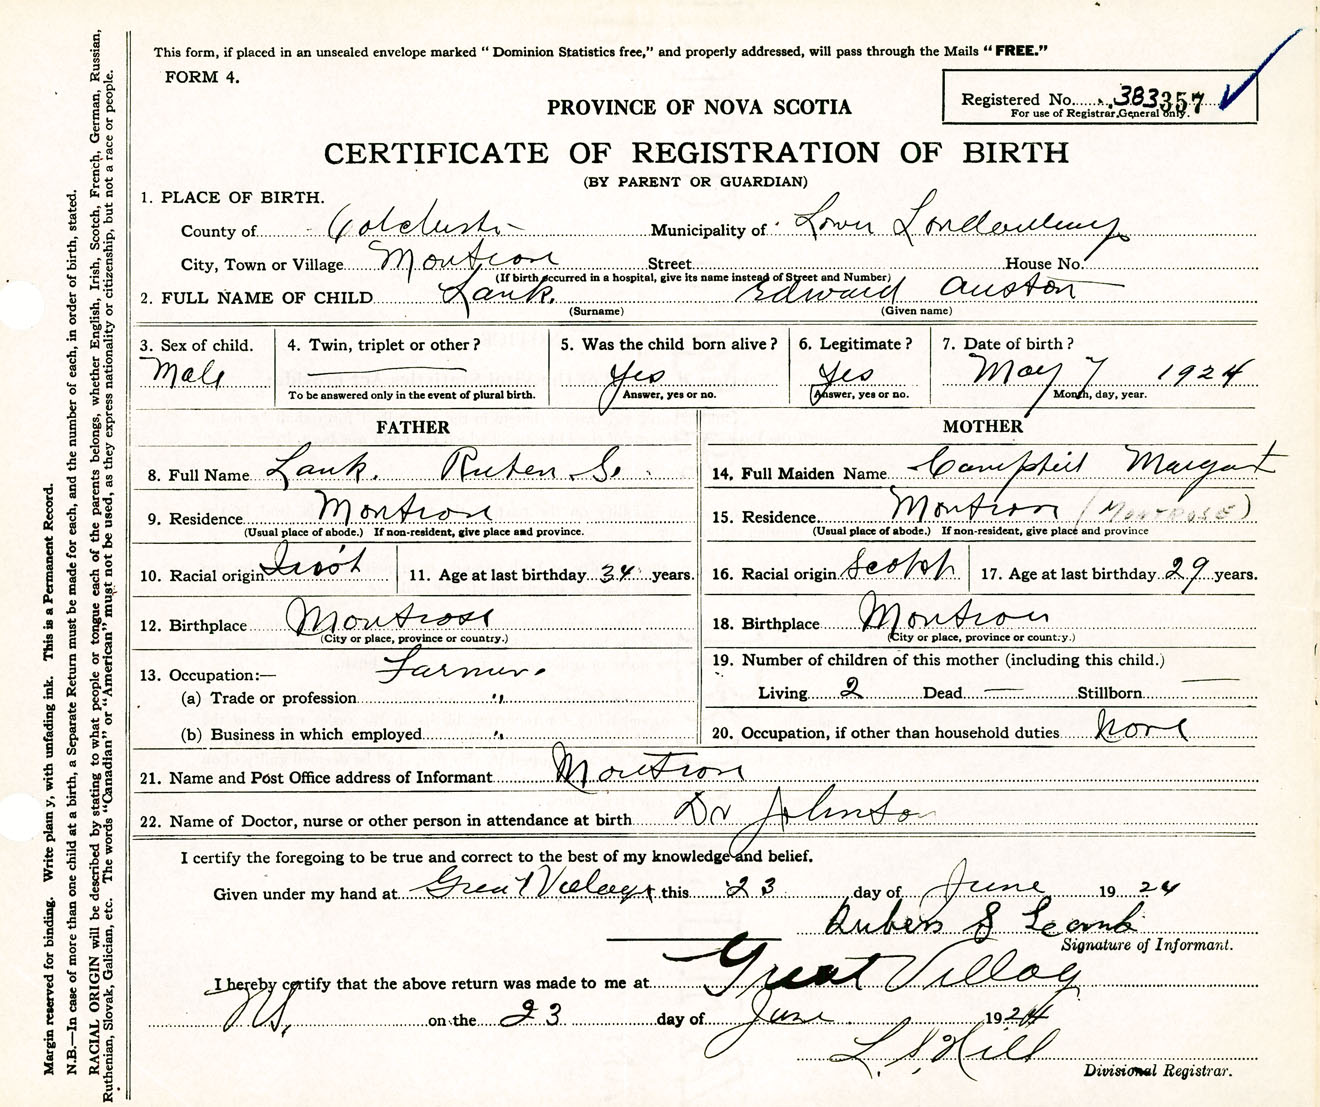 This form, if placed in an unsealed envelope marked "Dominion Statistics free," and properly addressed, will pass through the Mails "FREE."
FORM 4.
Registered No. 383357
For use of Registrar General only.
PROVINCE OF NOVA SCOTIA
CERTIFICATE OF REGISTRATION OF BIRTH
(BY PARENT OR GUARDIAN)
1. PLACE OF BIRTH.
County of Colchester Municipality of Lower Londonderry
City, Town or Village Montrose Street House No.
(If birth occurred in a hospital, give its name instead of Street and Number)
2. FULL NAME OF CHILD Lank. Edward Auston
(Surname) (Given name)
3. Sex of child. 4. Twin, triplet or other? 5. Was the child born alive? 6. Legitimate? 7. Date of birth?
Male Yes Yes May 7 1924
To be answered only in the event of plural birth. Answer, yes or no. Answer, yes or no. Month, day, year.
FATHER
8. Full Name Lank. Ruben S.
9. Residence Montrose
(Usual place of abode.) If non-resident, give place and province.
10. Racial origin 11. Age at last birthday 34 years.
12. Birthplace Montrose
(City or place, province or country.)
13. Occupation:— Farmer.
(a) Trade or profession "
(b) Business in which employed "
MOTHER
14. Full Maiden Name Campbell Margart
15. Residence Montrose (MONTROSE)
(Usual place of abode.) If non-resident, give place and province
16. Racial origin 17. Age at last birthday 29 years.
18. Birthplace Montrose
(City or place, province or country.)
19. Number of children of this mother (including this child.)
Living 2 Dead — Stillborn —
20. Occupation, if other than household duties None
21. Name and Post Office address of Informant Montrose
22. Name of Doctor, nurse or other person in attendance at birth Dr Johnson
I certify the foregoing to be true and correct to the best of my knowledge and belief.
Given under my hand at Great Village this 23 day of June 1924
Ruben S
Signature of Informant.
I hereby certify that the above return was made to me at Great Village
N.S. on the 23 day of June 1924
L. S. Hill
Divisional Registrar.
Margin reserved for binding. Write plain y, with unfading ink. This is a Permanent Record.
N.B.—In case of more than one child at a birth, a Separate Return must be made for each, and the number of each, in order of birth, stated.
RACIAL ORIGIN will be described by stating to what people or tongue each of the parents belongs, whether English, Irish, Scotch, French, German, Russian,
Ruthenian, Slovak, Galician, etc. The words "Canadian" or "American" must not be used, as they express nationality or citizenship, but not a race or people.